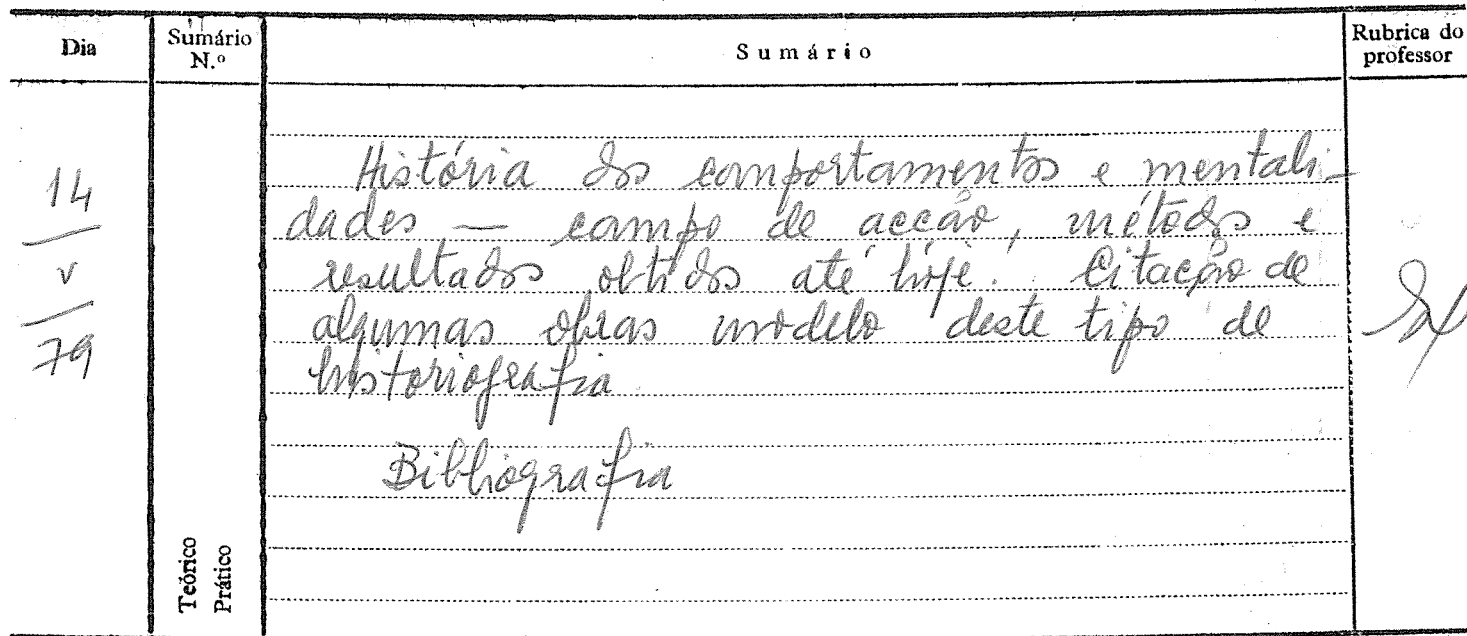 Dia
Sumário N.º
Sumário
Rubrica do professor
14
V
79
História dos comportamentos e mentali-
dades — campo de acção, métodos e
resultados obtidos até hoje. Citação de
algumas obras modelo deste tipo de
historiografia
Bibliografia
Teórico
Prático